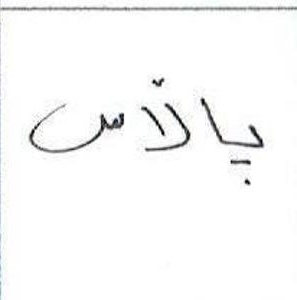 پاڵاس